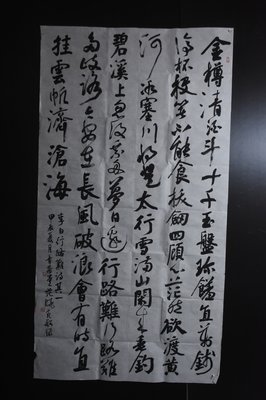 金樽清酒斗十千玉盤珍饈直萬錢
停杯投箸不能食拔劍四顧心茫然欲渡黃
河冰塞川將登太行雪滿山閑來垂釣
碧溪上忽復乘舟夢日邊行路難行路難
多歧路今安在長風破浪會有時直
挂雲帆濟滄海
李白行路難詩其一
甲辰夏月